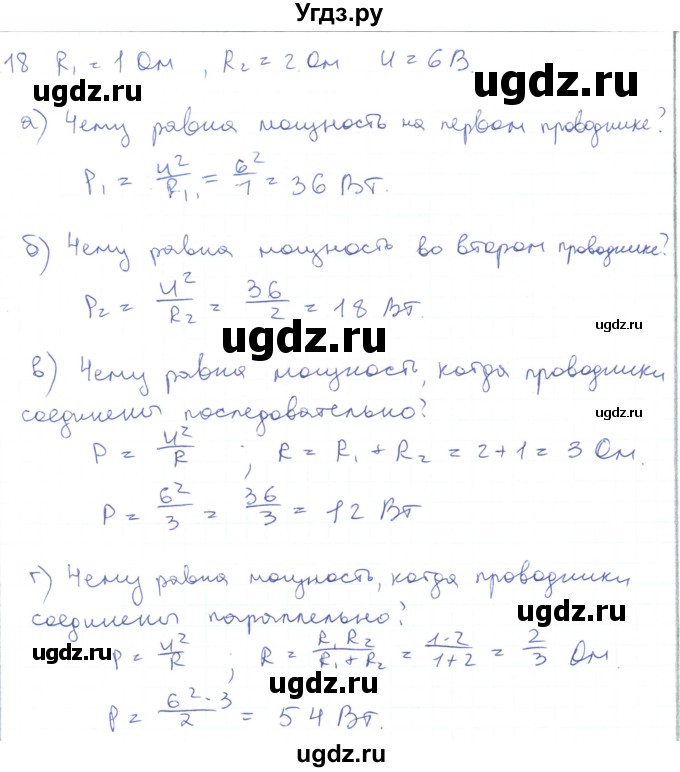 Угдз.ру
18 R₁ = 1 Ом, R₂ = 2 Ом U = 6 В.
ugdz.ru
ugdz.ru
а) Чему равна мощность на первом проводнике?
P₁ = U²/R₁ = 6²/1 = 36 Вт.
ugdz.ru
б) Чему равна мощность во втором проводнике?
P₂ = U²/R₂ = 36/2 = 18 Вт.
ugdz.ru
ugdz.ru
в) Чему равна мощность, когда проводники
соединены последовательно?
ugdz.ru
P = U²/R ; R = R₁ + R₂ = 2+1 = 3 Ом.
P = 6²/3 = 36/3 = 12 Вт
ugdz.ru
г) Чему равна мощность, когда проводники
соединены параллельно?
ugdz.ru
ugdz.ru
P = U²/R ; R = R₁R₂/R₁+R₂ = 1·2/1+2 = 2/3 Ом.
ugdz.ru
P = 6²·3/2 = 54 Вт.
ugdz.ru